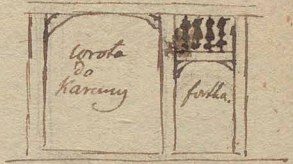 wrota
do
Karczmy
fortka.